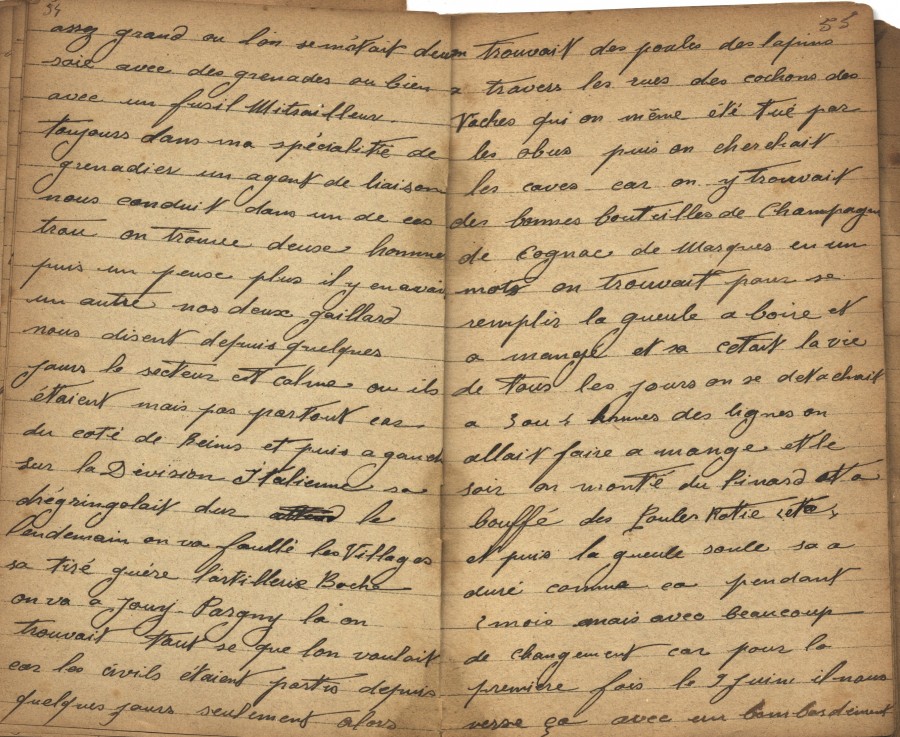 54
assez grand ou l'on se métait deux
soie avec des grenades ou bien
avec un fusil Mitrailleur.
toujours dans ma spécialitée de
grenadier un agent de liaison
nous conduit dans un de ces
trou on trouve deuse homme
puis un peuse plus il y en avai
un autre nos deux gaillard
nous disent depuis quelques
jours le secteur est calme ou ils
étaient mais pas partout car
du coté de Reims et puis a gauch
sur la Division Italienne sa
dégringolait dur le
lendemain on va fouillé les Villages
sa tiré guére l'artillerie Boche
on va a Jouy Pargny là on
trouvait tout se que lon voulait
car les civils étaient partis depuis
quelques jours seulement alors
55
on trouvait des poules des lapins
a travers les rues des cochons des
Vaches qui on même été tué par
les obus puis on cherchait
les caves car on y trouvait
des bonnes bouteilles de Champagne
de Cognac de Marques en un
mots on trouvait pour se
remplir la gueule a boire et
a mangé et sa cetait la vie
de tous les jours on se detachait
a 3 ou hommes des lignes on
allait faire a mange et le
soir on monté du Pinard et a
bouffé des Poules Rotie etc
et puis la gueule soule sa a
duré comme ca pendant
mois mais avec beaucoup
de changement car pour la
premiere fois le 9 juin il nous
verse ça avec un bombardement